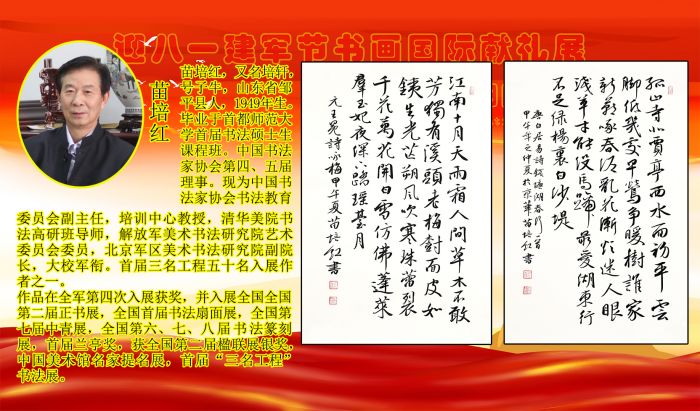 迎八一建军节书画国际献礼展
苗培红
苗培红，又名培轩，
号子牛，山东省邹
平县人，1949年生。
毕业于首都师范大
学首届书法硕士生
课程班。中国书法
家协会第四、五届
理事。现为中国书
法家协会书法教育
委员会副主任，培训中心教授，清华美院书
法高研班导师，解放军美术书法研究院艺术
委员会委员，北京军区美术书法研究院副院
长，大校军衔。首届三名工程五十名入展作
者之一。
作品在全军第四次入展获奖，并入展全国全国
第二届正书展，全国首届书法扇面展，全国第
七届中青展，全国第六、七、八届书法篆刻
展，首届兰亭奖，获全国第二届楹联展银奖，
中国美术馆名家提名展，首届“三名工程”
书法展。
江南十月天雨霜人間草木不敢
芳獨有溪頭老梅樹面皮如
銕生光芒朔風吹寒珠蕾裂
千花萬花開白雪仿佛蓬萊
羣玉妃夜深下踏瑶臺月
元王冕詩咏梅甲午夏苗培红書
孤山寺北賈亭西水面初平雲
脚低幾處早鶯爭暖樹誰家
新燕啄春泥亂花漸欲迷人眼
淺草才能没馬蹄最愛湖東行
不足緑楊裏白沙堤
唐白居易詩錢塘湖春行一首
甲午年之仲夏於京華苗培红書